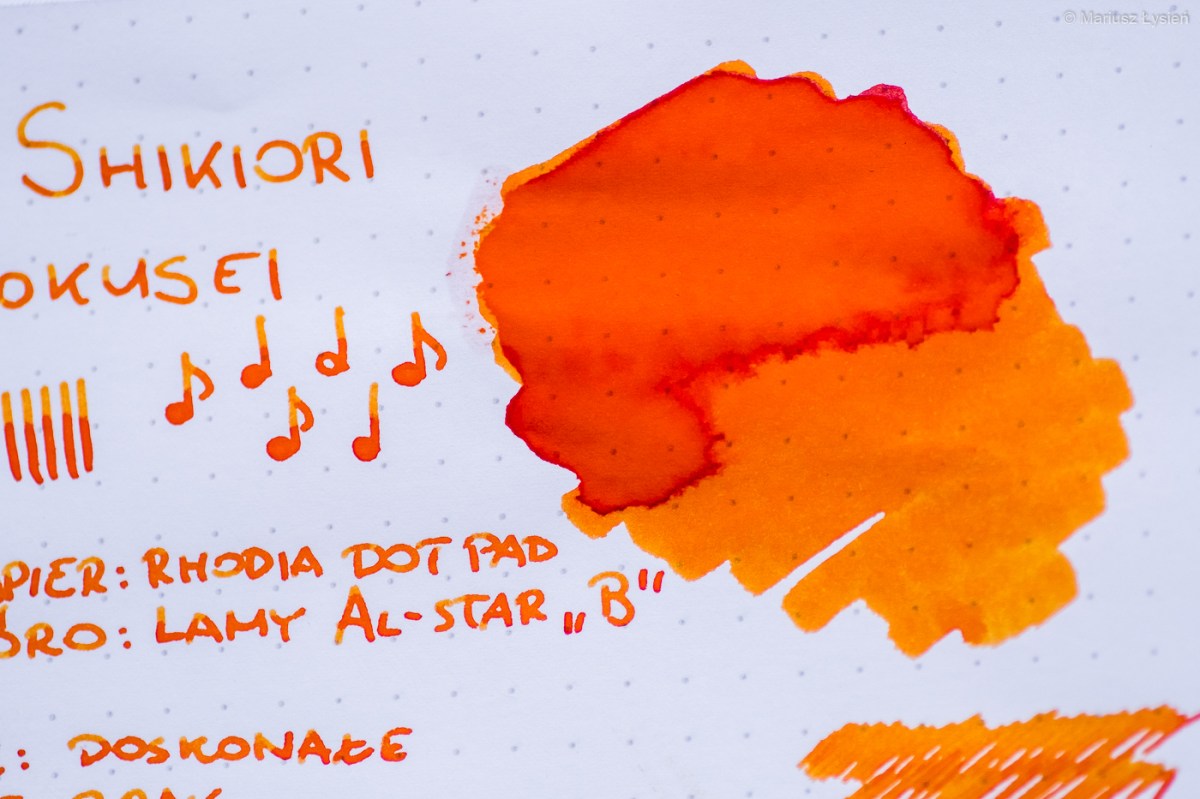 © Mariusz Łysień
SHIKIORI
OKUSEI
APIER: RHODIA DOT PAD
ÓRO: LAMY AL-STAR „B"
: DOSKONAŁE
BRAK